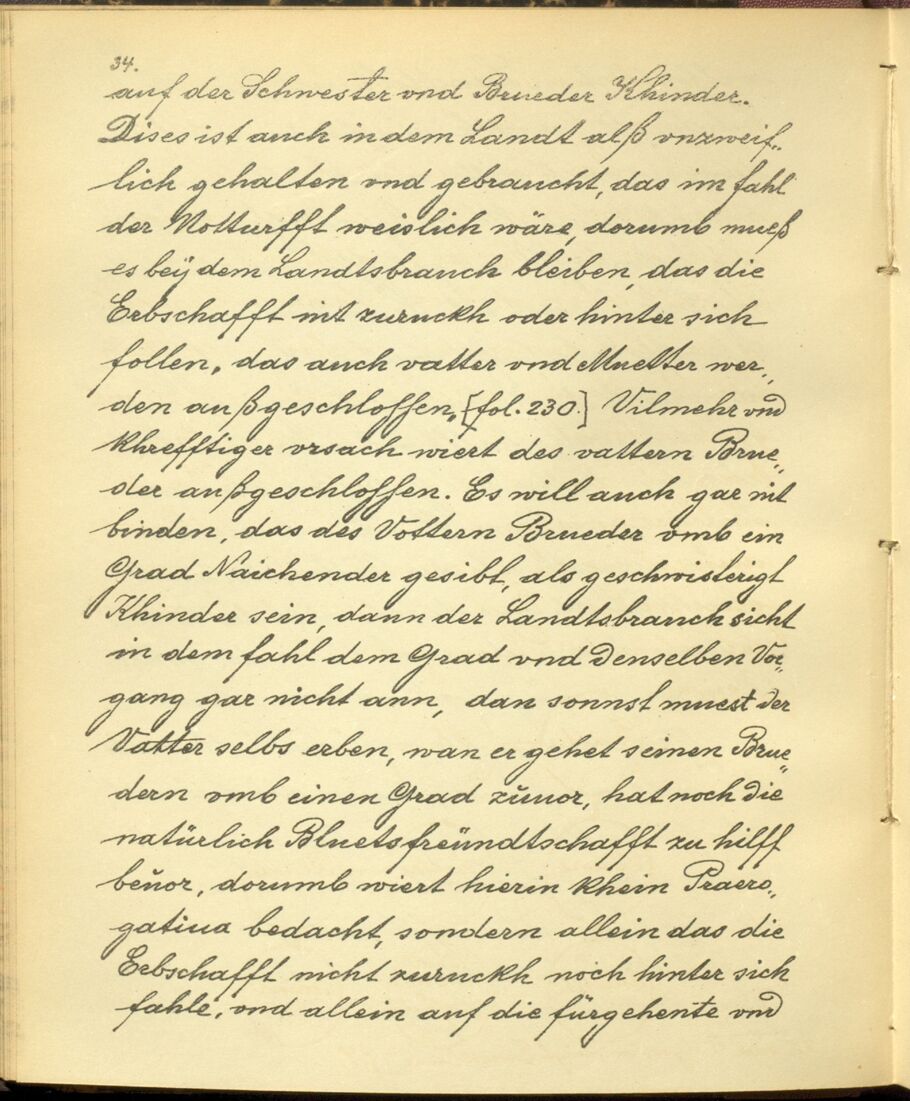 34.
auf der Schwester vnd Brueder Khinder.
Dises ist auch in dem Landt alß vnzweif„
lich gehalten vnd gebraucht, das im fahl
der Notturfft weislich wäre, dorumb mueß
es beÿ dem Landtsbrauch bleiben, das die
Erbschafft nit zuruckh oder hinter sich
follen, das auch vatter vnd Muetter wer„
den außgeschlossen, [fol. 230.] Vilmehr vnd
khrefftiger vrsach wiert des vattern Brue„
der außgeschlossen. Es will auch gar nit
binden, das des Vottern Brueder vmb ein
Grad Naichender gesibt, als geschwisterigt
Khinder sein, dann der Landtsbrauch sicht
in dem fahl dem Grad vnd denselben Vor„
gang gar nicht ann, dan sonnst muest der
Vatter selbs erben, wan er gehet seinen Brue„
dern vmb einen Grad zŭuor, hat noch die
natürlich Bluetsfreündtschafft zu hilff
beŭor, dorumb wiert hierin khein Praero„
gatiua bedacht, sondern allein das die
Erbschafft nicht zuruckh noch hinter sich
fahle, vnd allein auf die fürgehente vnd